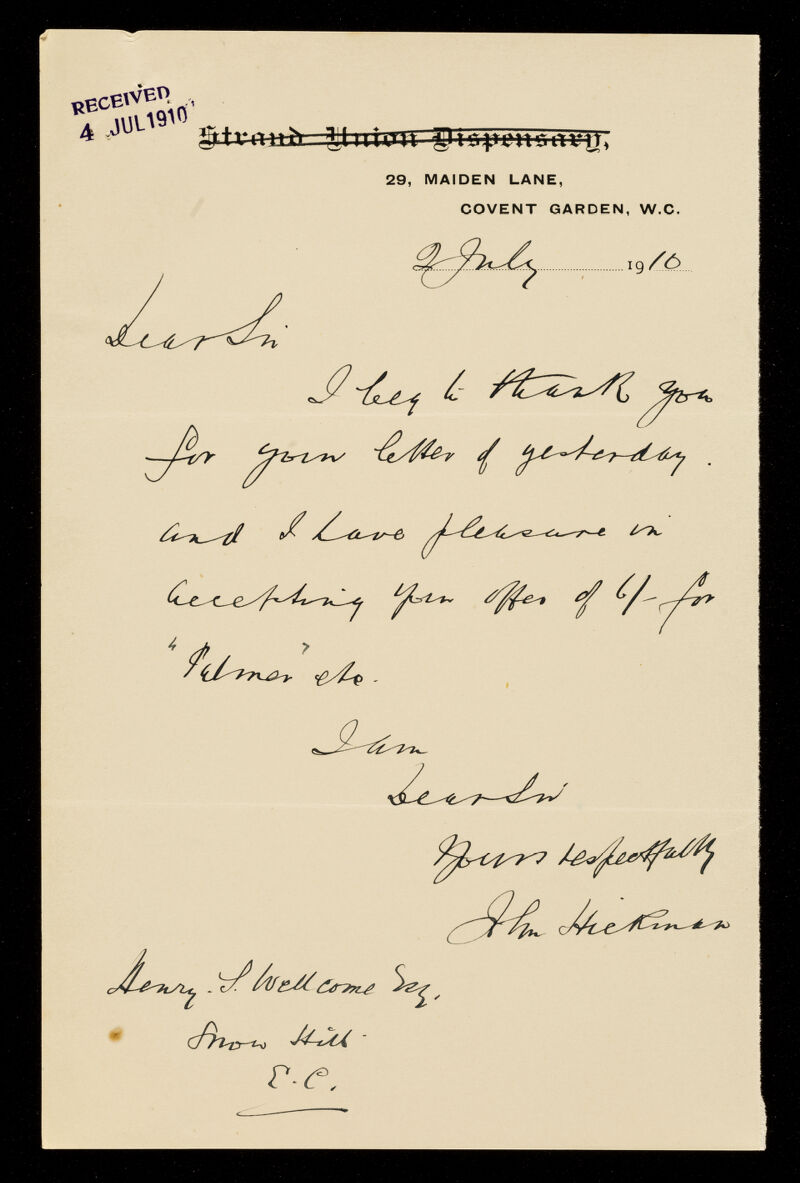 RECEIVED
4 JUL 1910
Strand Union Dispensary,
29, MAIDEN LANE,
COVENT GARDEN, W.C.
2 July 1910
Dear Sir
I beg to thank you
for your letter of yesterday.
and I have pleasure in
accepting your offer of 6/- for
"Palmer" etc.
I am
Dear Sir
Yours respectfully
John Hickman
Henry. S. Wellcome Esq.
Snow Hill.
E.C.